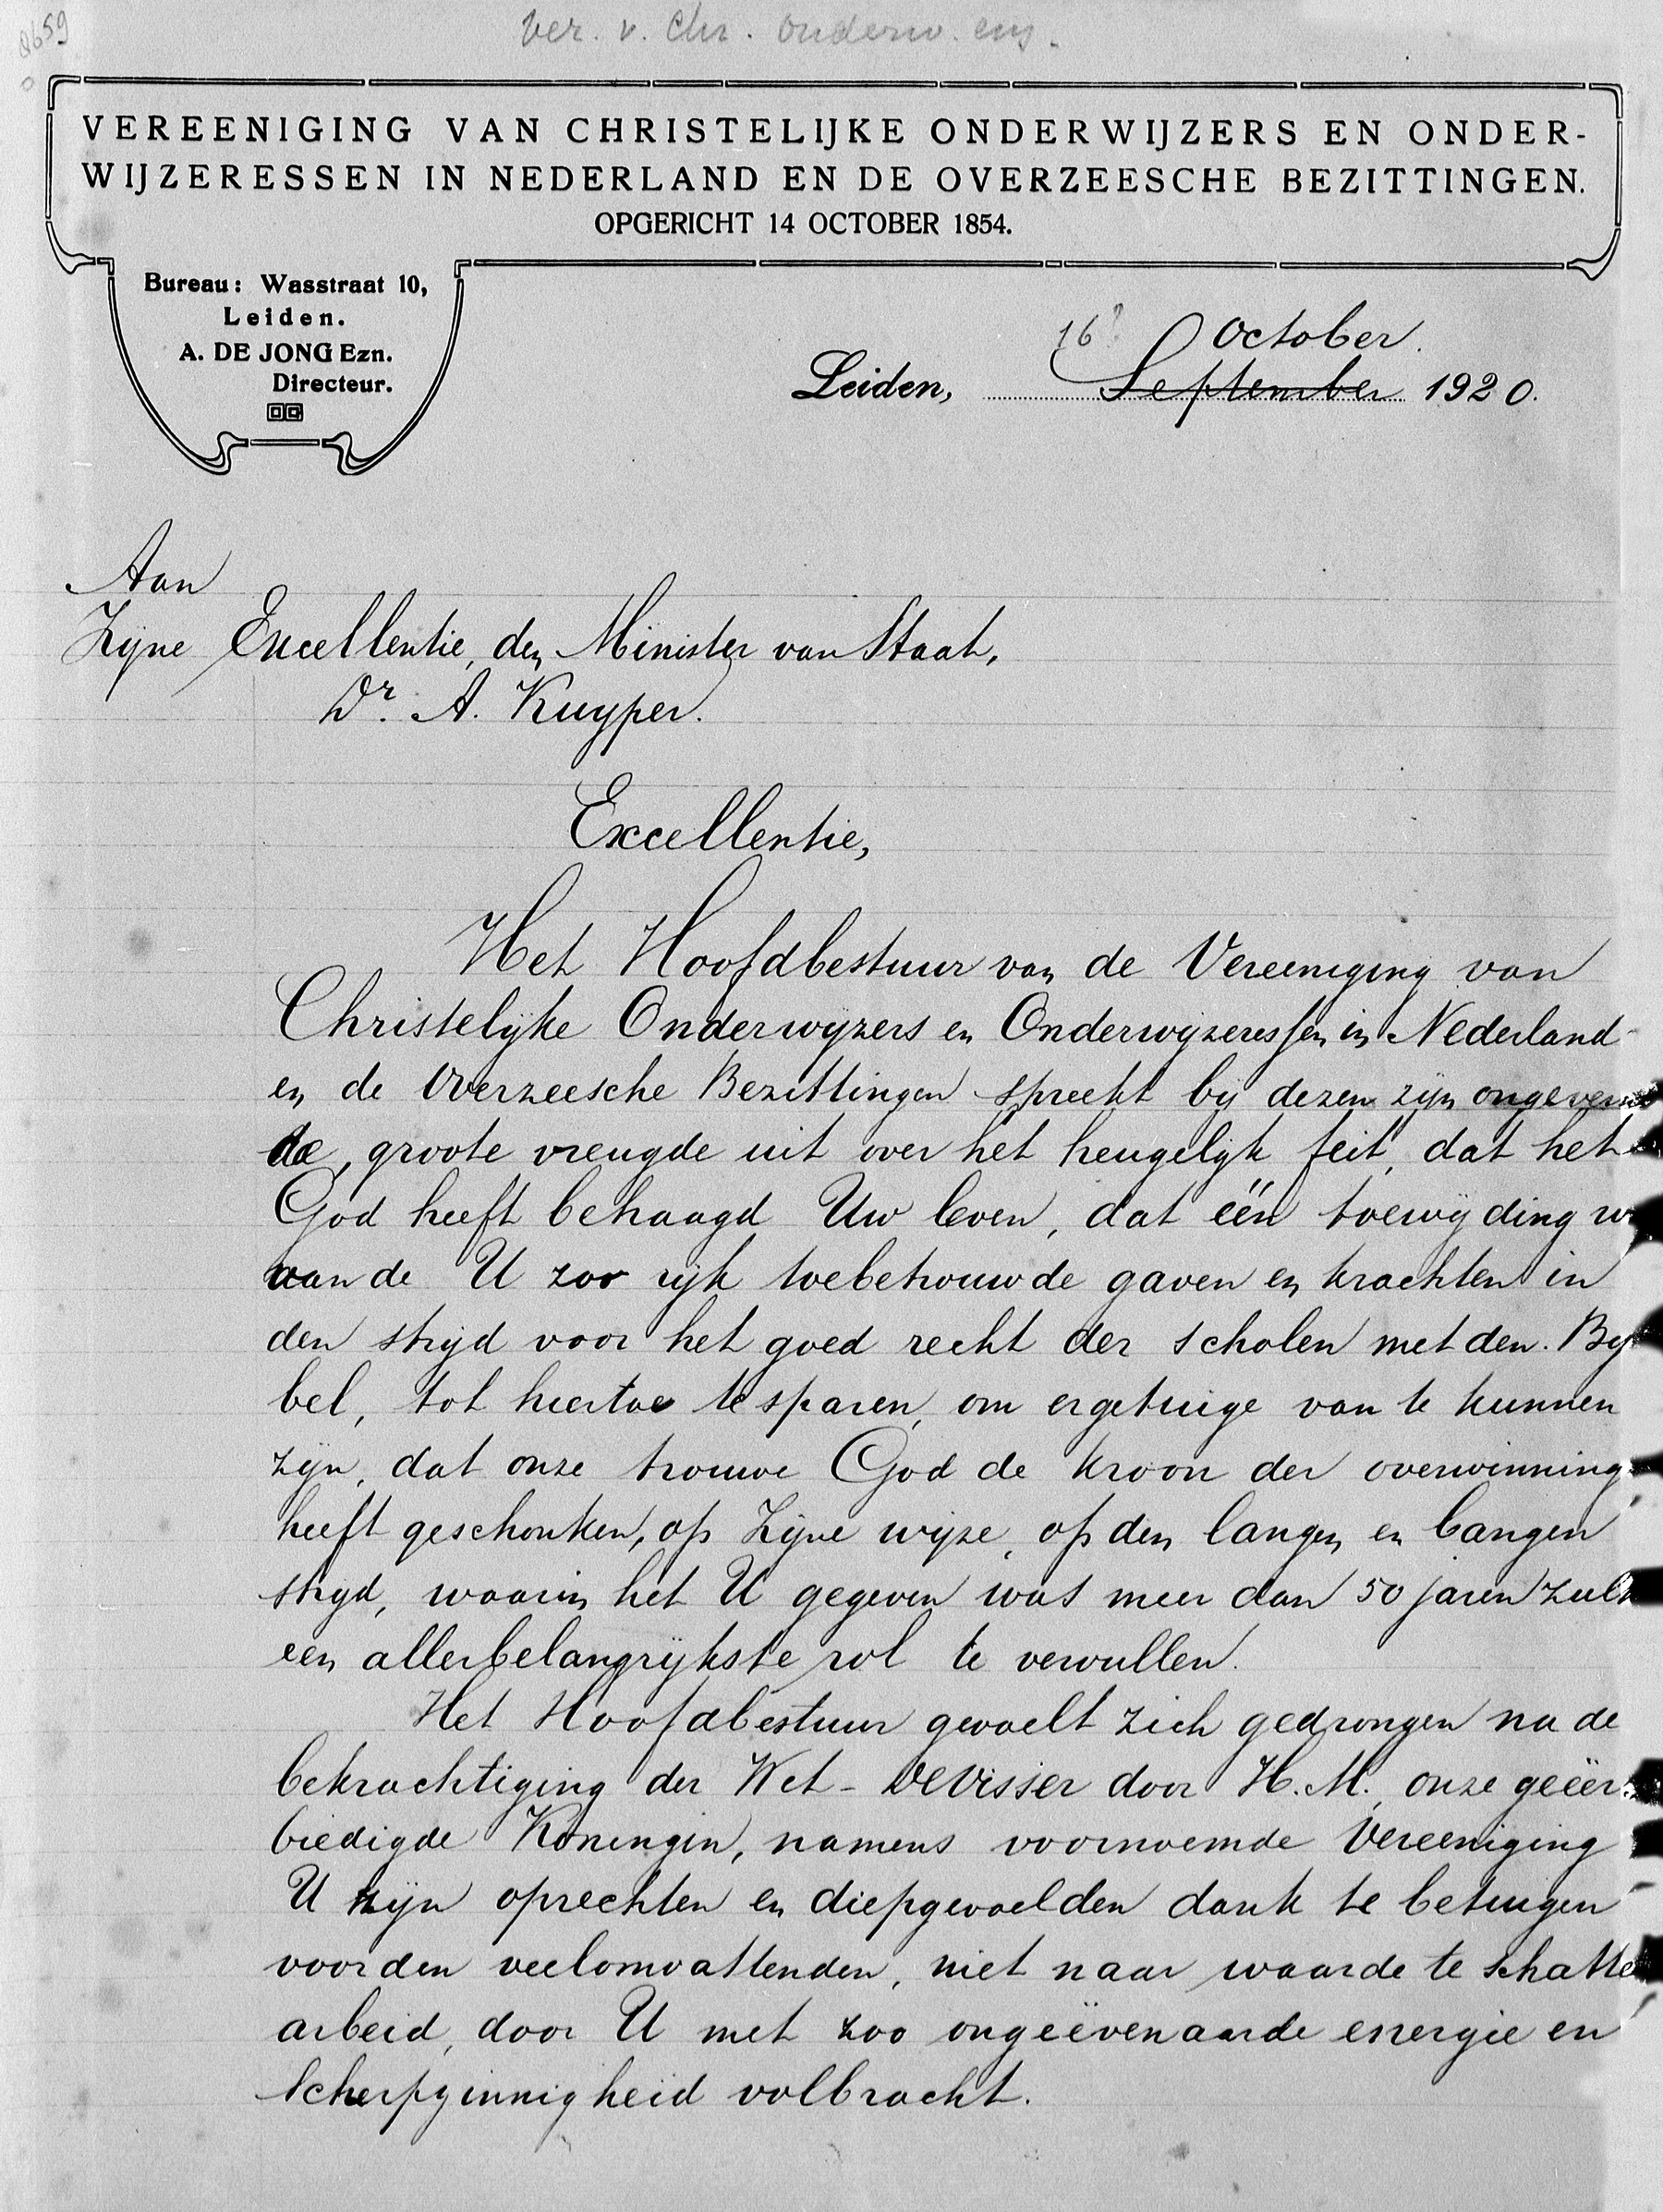 8659
Ver. v. Chr. onderw. enz.
VEREENIGING VAN CHRISTELIJKE ONDERWIJZERS EN ONDER-
WIJZERESSEN IN NEDERLAND EN DE OVERZEESCHE BEZITTINGEN.
OPGERICHT 14 OCTOBER 1854.
Bureau: Wasstraat 10,
Leiden.
A. DE JONG Ezn.
Directeur.
16 October.
Leiden, September 1920.
Aan
Zijne Excellentie, den Minister van Staat,
Dr. A. Kuyper.
Excellentie,
Het Hoofdbestuur van de Vereeniging van
Christelijke Onderwijzers en Onderwijzeressen in Nederland
en de Overzeesche Bezittingen spreekt bij dezen zijn ongeveins
de, groote vreugde uit over het heugelijk feit, dat het
God heeft behaagd Uw leven, dat één toewijding w
aan de U zoo rijk toebetrouwde gaven en krachten in
den strijd voor het goed recht der scholen met den Bij
bel, tot hiertoe te sparen, om er getuige van te kunnen
zijn, dat onze trouwe God de kroon der overwinning
heeft geschonken, op Zijne wijze, op den langen en bangen
strijd, waarin het U gegeven was meer dan 50 jaren zulk
een allerbelangrijkste rol te vervullen.
Het Hoofdbestuur gevoelt zich gedrongen na de
bekrachtiging der Wet-De Visser door H.M., onze geëer-
biedigde Koningin, namens voornoemde Vereeniging
U zijn oprechten en diepgevoelden dank te betuigen
voor den veelomvattenden, niet naar waarde te schatte
arbeid, door U met zoo ongeëvenaarde energie en
scherpzinnigheid volbracht.